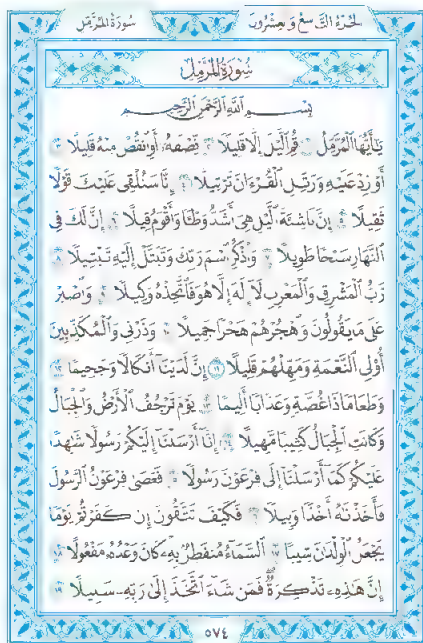 الجزء التاسع وعشرون سورة المزمل
سورة المزمل
بسم الله الرحمن الرحيم
يَٰٓأَيُّهَا ٱلْمُزَّمِّلُ ١ قُمِ ٱلَّيْلَ إِلَّا قَلِيلًا ٢ نِّصْفَهُۥٓ أَوِ ٱنقُصْ مِنْهُ قَلِيلًا ٣
أَوْ زِدْ عَلَيْهِ وَرَتِّلِ ٱلْقُرْءَانَ تَرْتِيلًا ٤ إِنَّا سَنُلْقِى عَلَيْكَ قَوْلًا
ثَقِيلًا ٥ إِنَّ نَاشِئَةَ ٱلَّيْلِ هِىَ أَشَدُّ وَطْـًٔا وَأَقْوَمُ قِيلًا ٦ إِنَّ لَكَ فِى
ٱلنَّهَارِ سَبْحًا طَوِيلًا ٧ وَٱذْكُرِ ٱسْمَ رَبِّكَ وَتَبَتَّلْ إِلَيْهِ تَبْتِيلًا ٨
رَّبُّ ٱلْمَشْرِقِ وَٱلْمَغْرِبِ لَآ إِلَٰهَ إِلَّا هُوَ فَٱتَّخِذْهُ وَكِيلًا ٩ وَٱصْبِرْ
عَلَىٰ مَا يَقُولُونَ وَٱهْجُرْهُمْ هَجْرًا جَمِيلًا ١٠ وَذَرْنِى وَٱلْمُكَذِّبِينَ
أُو۟لِى ٱلنَّعْمَةِ وَمَهِّلْهُمْ قَلِيلًا ١١ إِنَّ لَدَيْنَآ أَنكَالًا وَجَحِيمًا ١٢
وَطَعَامًا ذَا غُصَّةٍ وَعَذَابًا أَلِيمًا ١٣ يَوْمَ تَرْجُفُ ٱلْأَرْضُ وَٱلْجِبَالُ
وَكَانَتِ ٱلْجِبَالُ كَثِيبًا مَّهِيلًا ١٤ إِنَّآ أَرْسَلْنَآ إِلَيْكُمْ رَسُولًا شَٰهِدًا
عَلَيْكُمْ كَمَآ أَرْسَلْنَآ إِلَىٰ فِرْعَوْنَ رَسُولًا ١٥ فَعَصَىٰ فِرْعَوْنُ ٱلرَّسُولَ
فَأَخَذْنَٰهُ أَخْذًا وَبِيلًا ١٦ فَكَيْفَ تَتَّقُونَ إِن كَفَرْتُمْ يَوْمًا
يَجْعَلُ ٱلْوِلْدَٰنَ شِيبًا ١٧ ٱلسَّمَآءُ مُنفَطِرٌۢ بِهِۦ كَانَ وَعْدُهُۥ مَفْعُولًا ١٨
إِنَّ هَٰذِهِۦ تَذْكِرَةٌ فَمَن شَآءَ ٱتَّخَذَ إِلَىٰ رَبِّهِۦ سَبِيلًا ١٩
٥٧٤